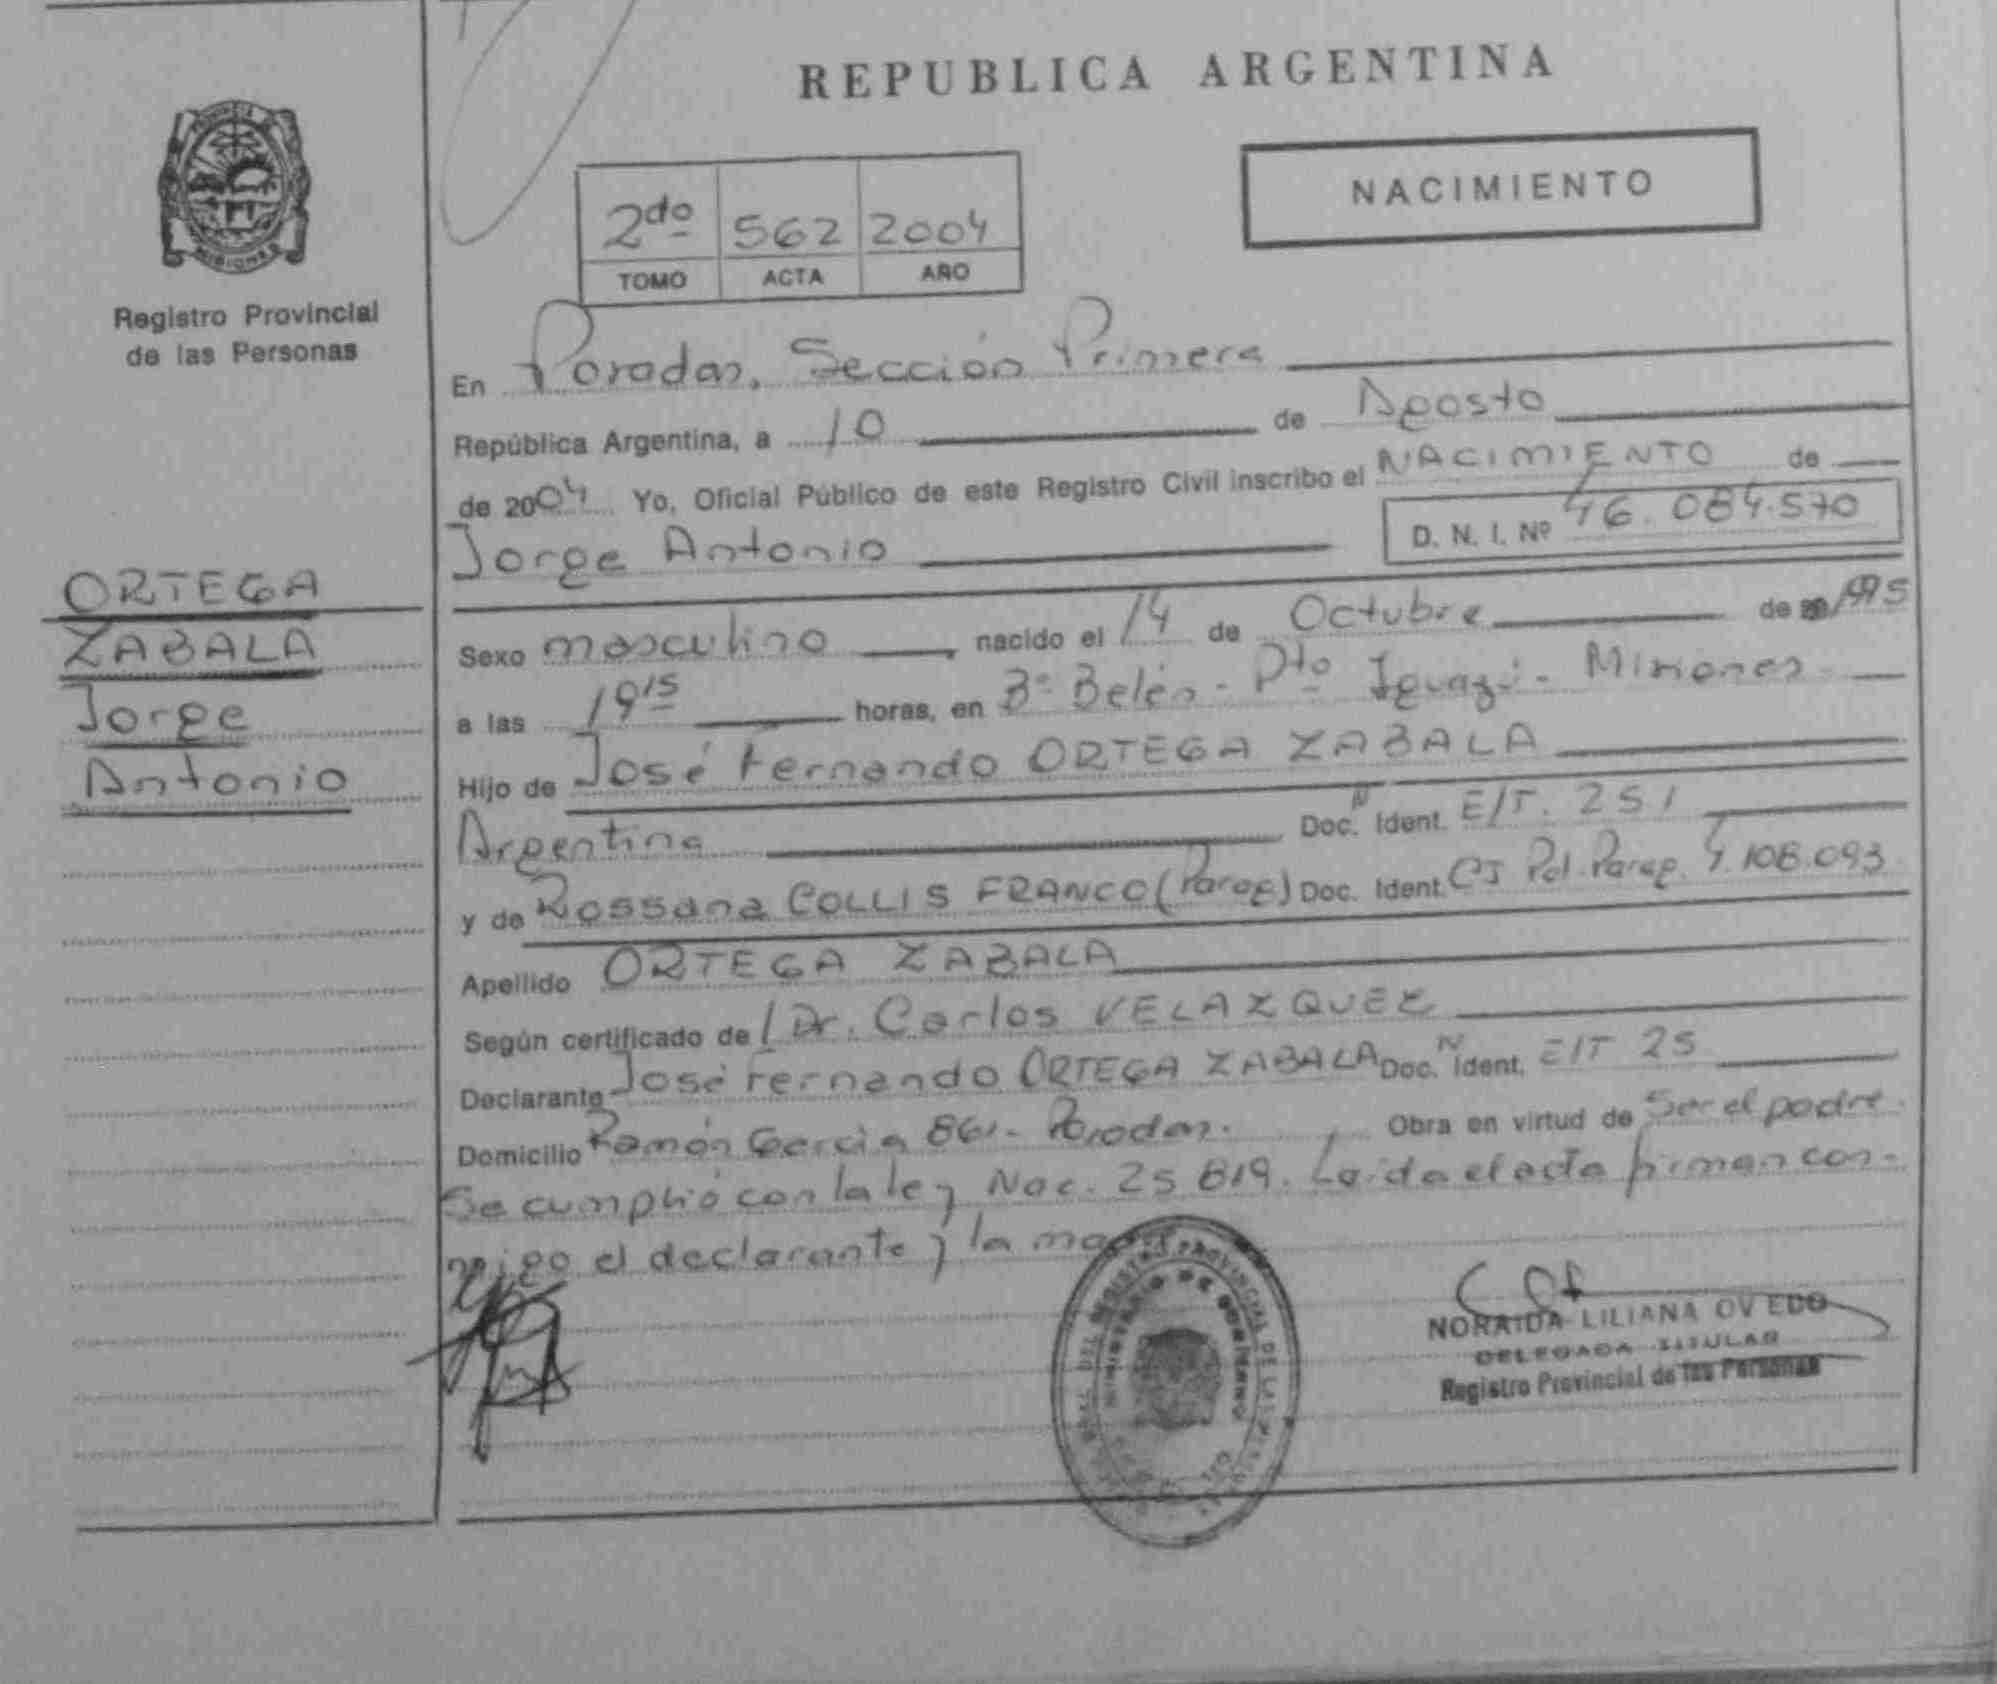 REPUBLICA ARGENTINA
NACIMIENTO
2do 562 2004
TOMO ACTA AÑO
PROVINCIA DE MISIONES
Registro Provincial
de las Personas
ORTEGA
ZABALA
Jorge
Antonio
En Posadas, Sección Primera
República Argentina, a 10 de Agosto
de 2004 Yo, Oficial Público de este Registro Civil inscribo el NACIMIENTO de
Jorge Antonio D. N. I. Nº 46.084.570
Sexo masculino nacido el 14 de Octubre de 1995
a las 19 15 horas, en Bº Belén - Pto Iguazú - Misiones
Hijo de José Fernando ORTEGA ZABALA
Argentina Doc. N Ident. E/T. 251
y de Rossana COLLIS FRANCO (Parag) Doc. Ident. CI Pol. Parag. 4.108.093
Apellido ORTEGA ZABALA
Según certificado de Dr. Carlos VELAZQUEZ
Declarante José Fernando ORTEGA ZABALA Doc. N Ident. E/T 25
Domicilio Ramón García 861 - Posadas. Obra en virtud de Ser el padre.
Se cumplió con la ley Nac. 25 819. Leída el acta firman con-
migo el declarante y la
REGISTRO PROVINCIAL DE LAS
MINISTERIO DE GOBIERNO
NORAIDA LILIANA OVIEDO
DELEGADA TITULAR
Registro Provincial de las Personas